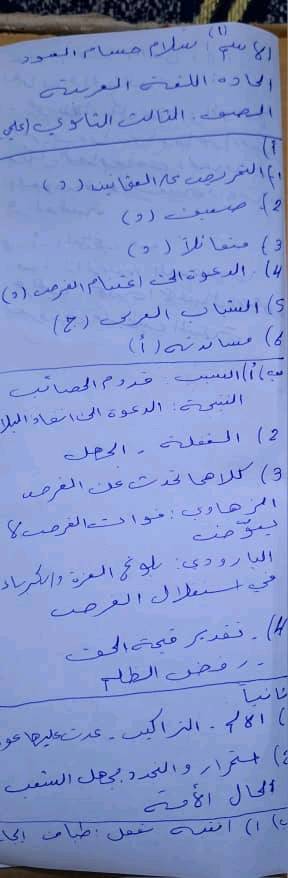 (1)
الاسم: سلام حسام العود
المادة: اللغة العربية
الصف: الثالث الثانوي (علمي
أ)
1) التحريض على العثمانيين (د)
2) ضعيف (د)
3) متفائلاً (د)
4) الدعوة إلى اغتنام الفرص (د)
5) الشباب العربي (ج)
6) مساندته (أ)
ب) 1) السبب: قدوم المصائب
النتيجة: الدعوة إلى انقاذ البلا
2) الغفلة - الجهل
3) كلاهما تحدث عن الفرصة
الزهاوي: فوات الفرصة لا
يعوّض
البارودي: بلوغ العزة والكبرياء
في استغلال الفرص
4) - تقدير قيمة الحق
- رفض الظلم
ثانياً
1) الألم - التراكيب - عدت عليها عو
2) استمرار والتجدد بجهل الشعب
لحال الأمة
ب) 1) طباق